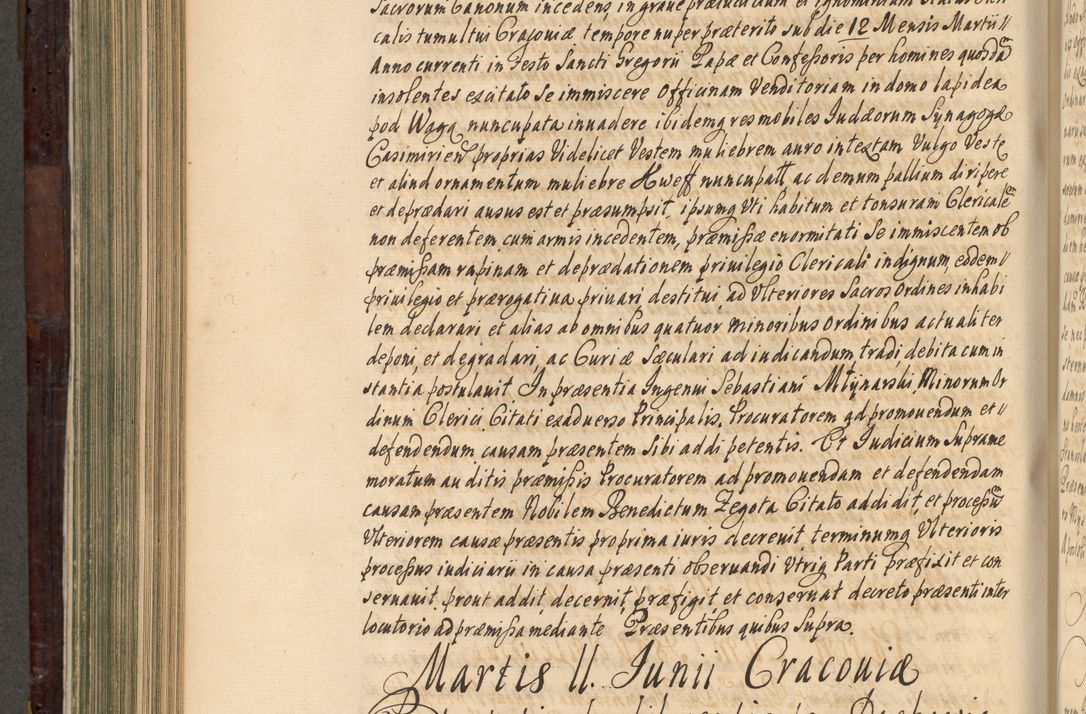 Sacrorum Canonum incedens, in graue præiudicium et ignominiam Status Cleri
calis tumultui Cracoviæ tempore nuper præterito sub die 12 Mensis Martii //
Anno currenti in Festo Sancti Gregorii Papæ et Confessoris per homines quosda͠m
insolentes excitato se immiscere Officinam Venditoriam in domo lapidea
pod Wagą nuncupata inuadere ibidemq res mobiles Iudæorum Synagogæ
Casimirien proprias Videlicet Vestem muliebrem auro intextam Vulgo Veste
et aliud ornamentum muliebre Kweff nuncupatt ac demum pallium diripere
et deprædari ausus est et præsumpsit, ipsumq Vti habitum et tonsuram Clericale͠m
non deferentem, cum armis incedentem, præmissæ enormitati Se immiscentem ob
præmissam rapinam et deprædationem priuilegio Clericali indignum, eodem //
priuilegio et prærogatiua priuari destitui, ad Vlteriores Sacros Ordines inhabi
lem declarari et alias ab omnibus quatuor minoribus Ordinibus actualiter
deponi, et degradari, ac Curiæ Sæculari ad iudicandum tradi debita cum in
stantia postulauit. In præsentia Ingenui Sebastiani Młynarski Minorum Or
dinum Clerici Citati ex aduerso Principalis, Procuratorem ad promouendum et //
defendendum causam præsentem Sibi addi petentis. Et Iudicium Supra me
moratum auditis præmissis Procuratorem ad promouendam et defendendam
causam præsentem Nobilem Benedictum Zegota Citato addidit, et processu͠m
Vlteriorem causæ præsentis pro prima iuris decreuit terminumq Vlterioris
processus iudiciarii in causa præsenti obseruandi Vtriq Parti præfixit et con
seruauit, prout addit decernit, præfigit et conseruat decreto præsenti inter
locutorio ad præmissa mediante Præsentibus quibus Supra.
Martis 11. Iunii Cracouiæ